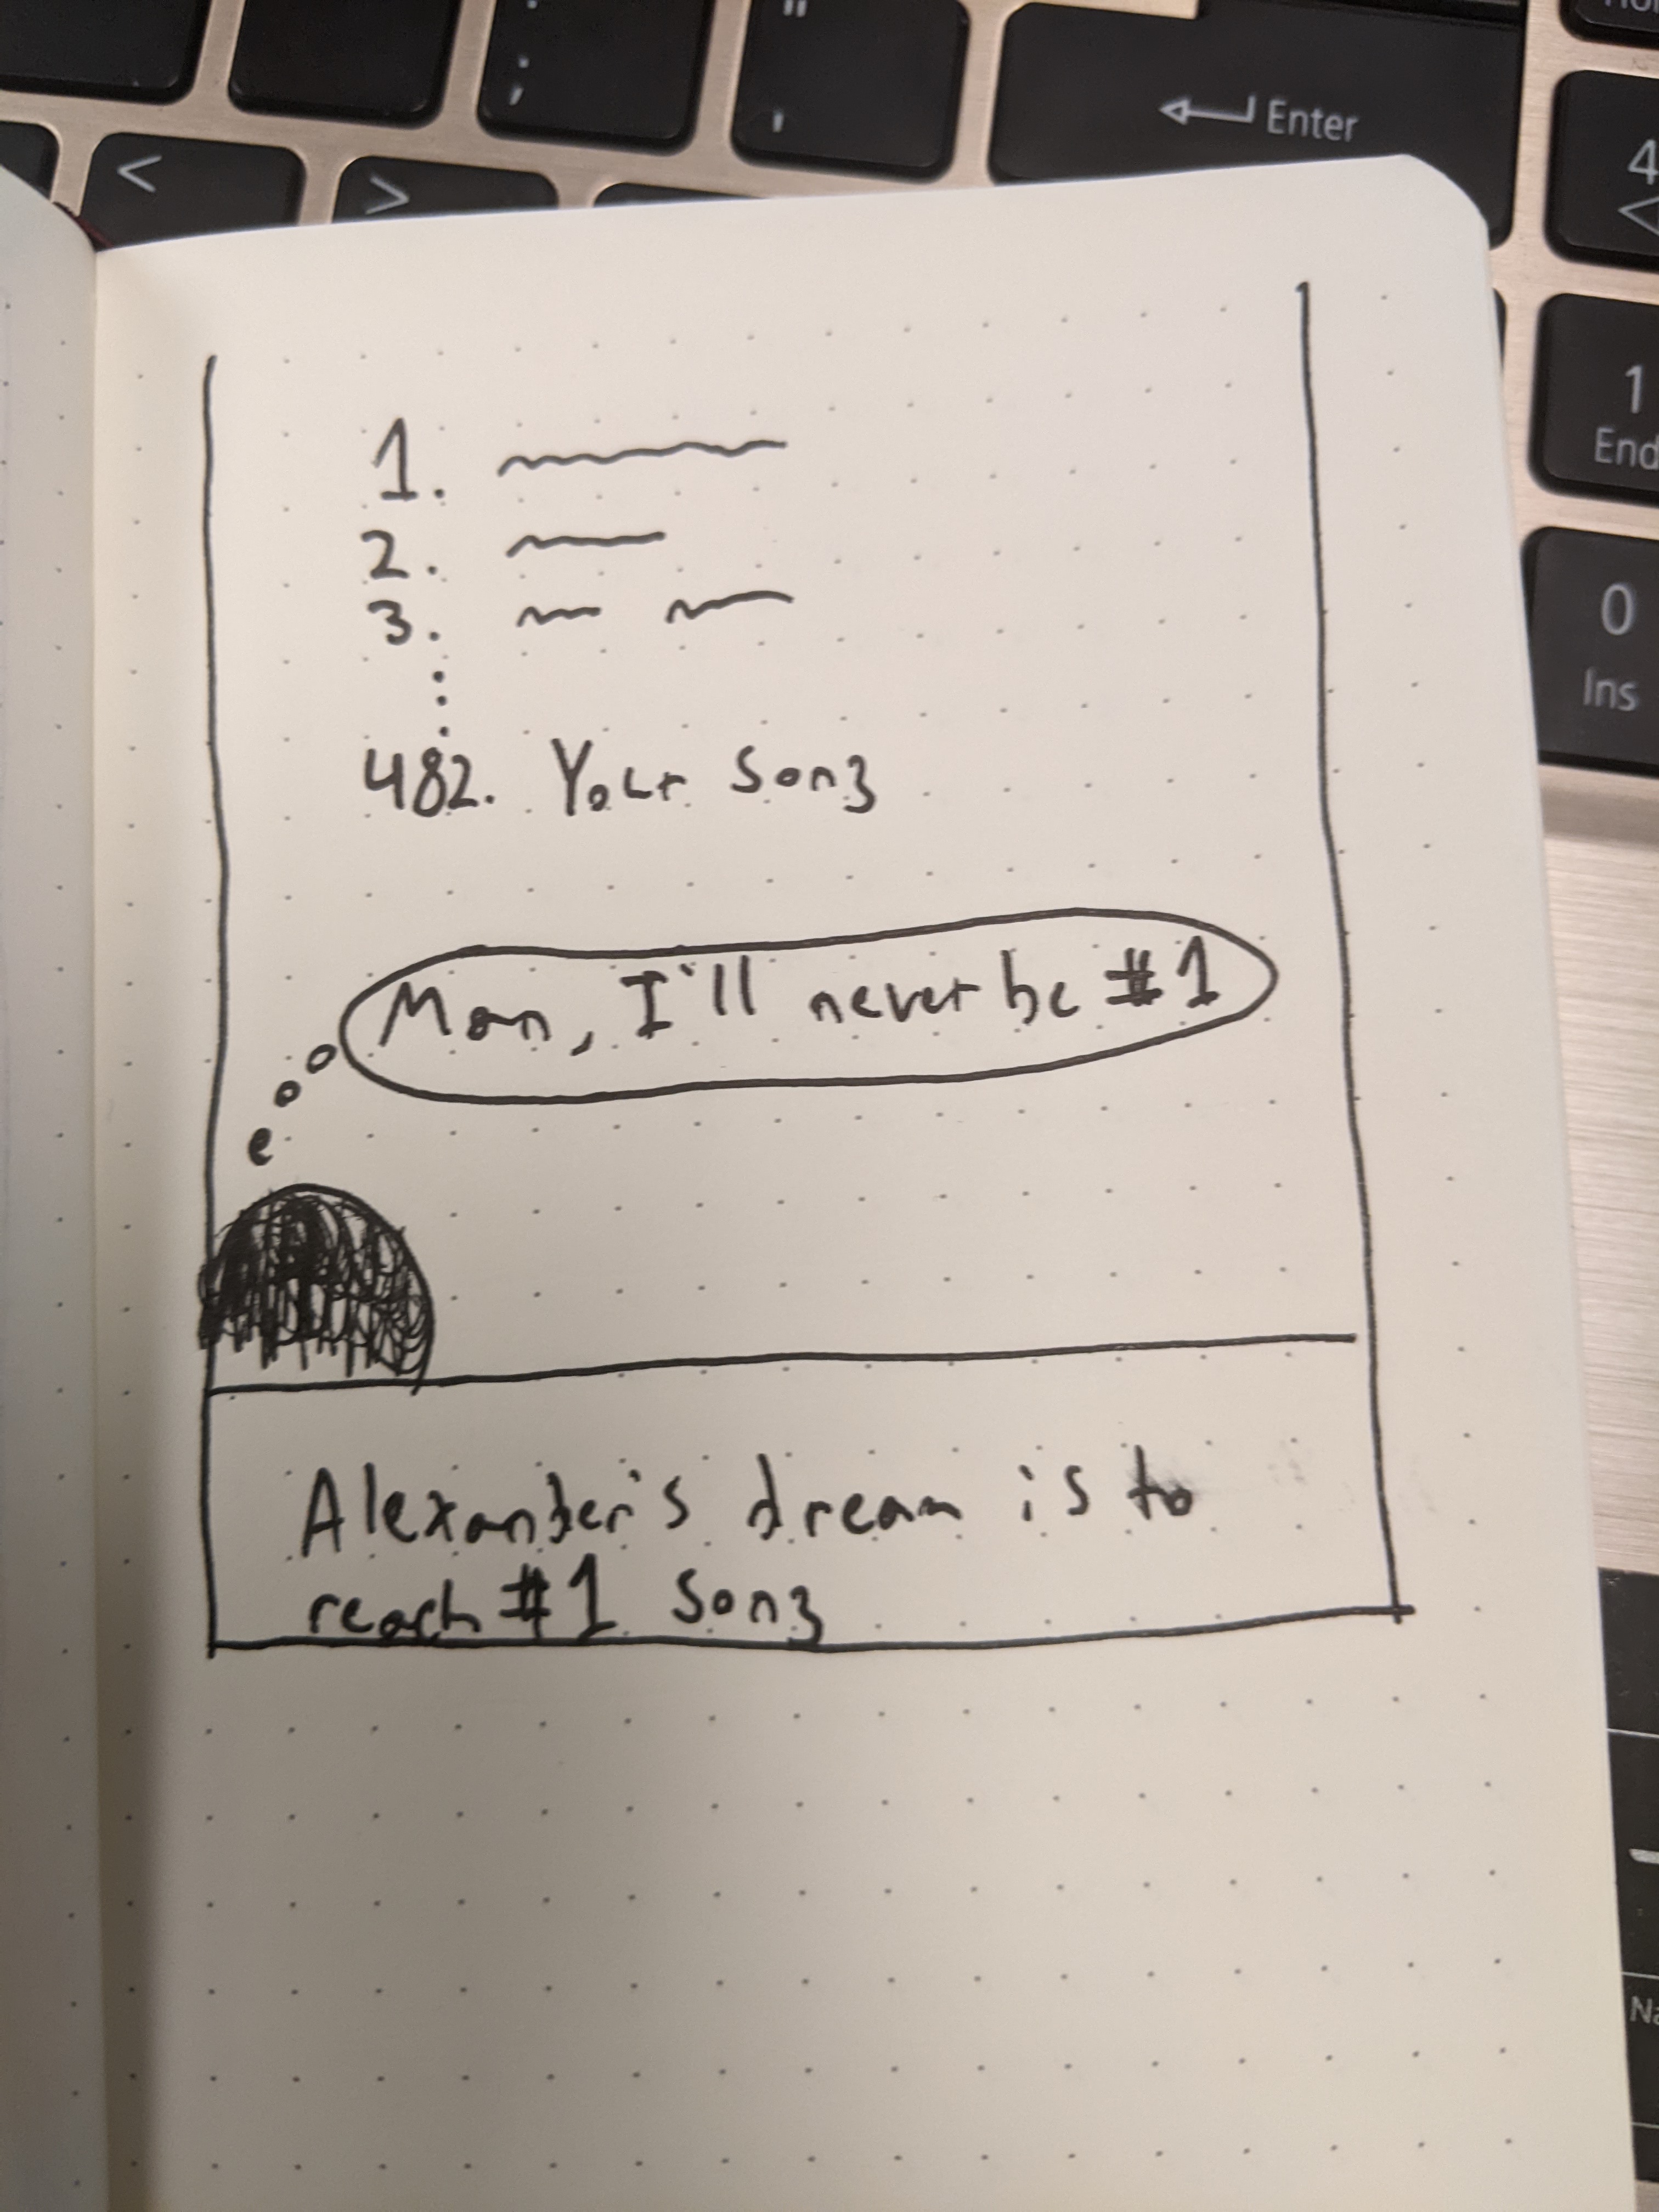 ;
"
'
Enter
<
>
4
<
1
End
0
Ins
1.
2.
3.
482. Your Song
Man, I'll never be #1
Alexander's dream is to
reach #1 Song